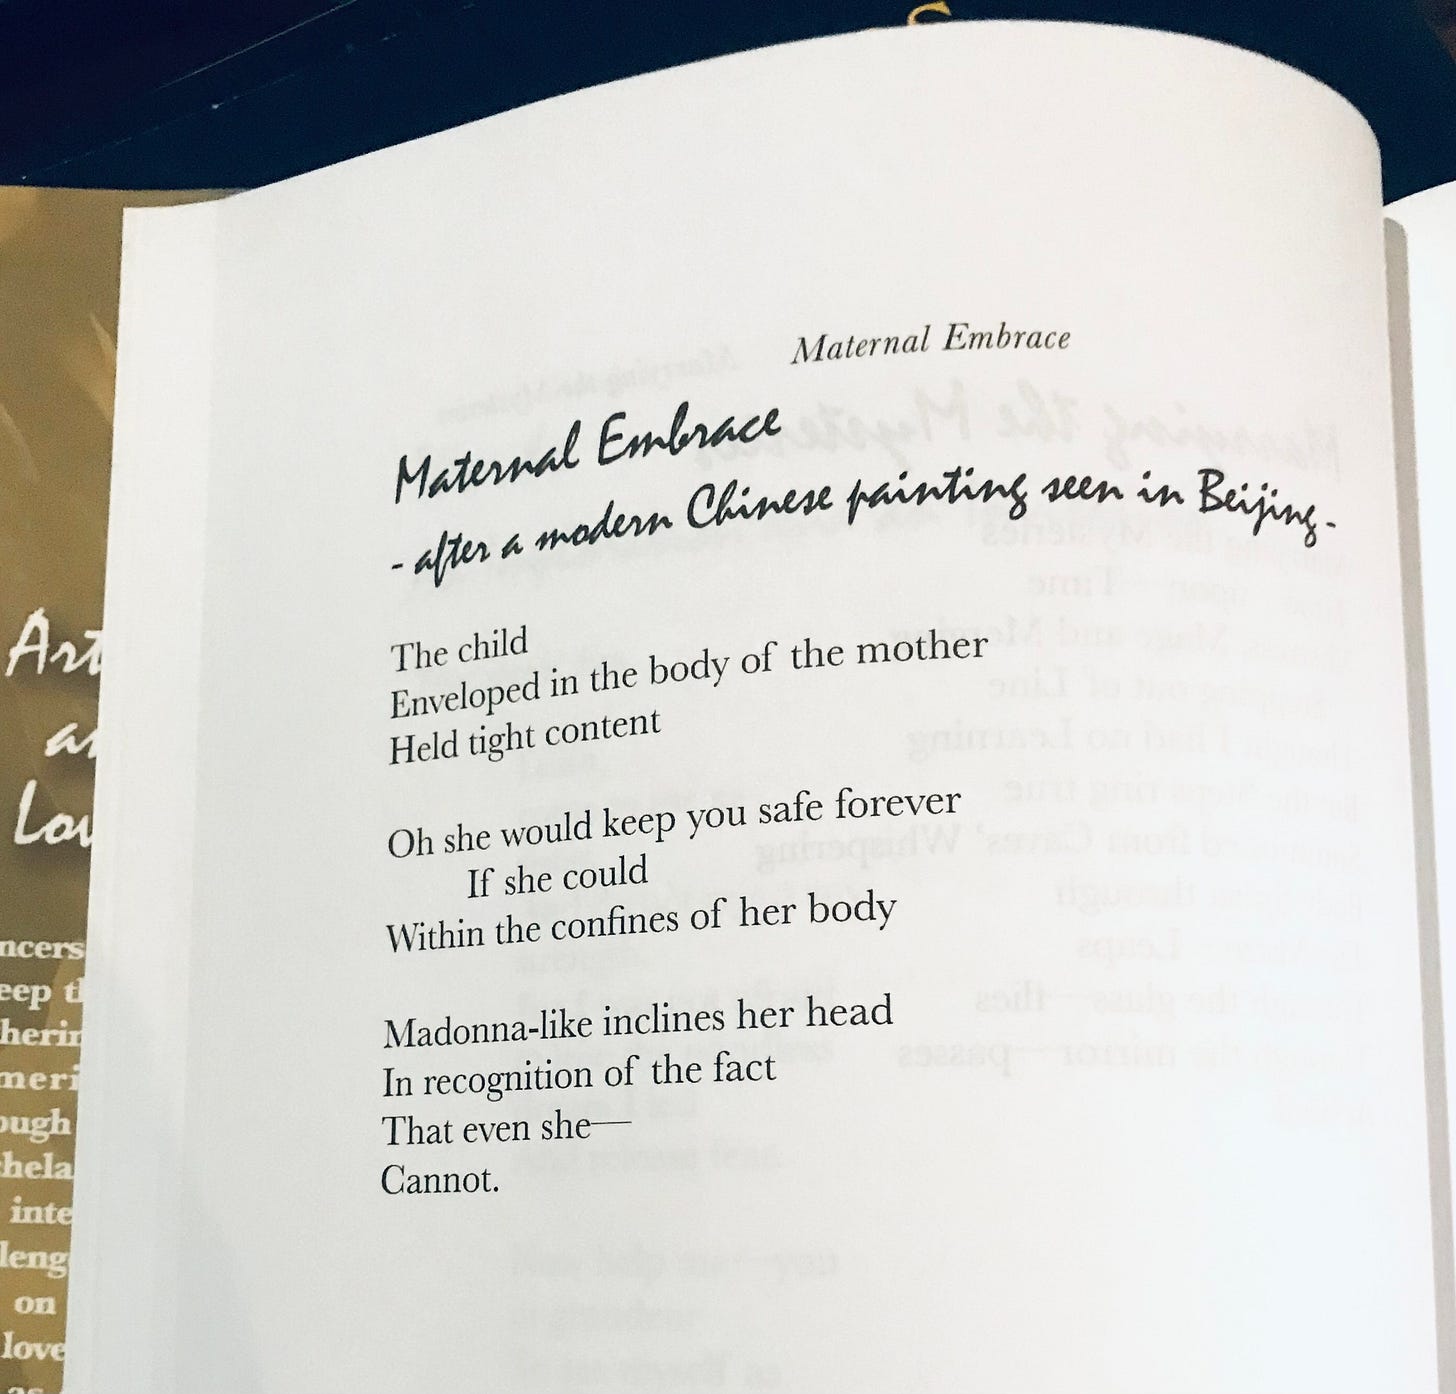 S
Maternal Embrace
Maternal Embrace
- after a modern Chinese painting seen in Beijing -
The child
Enveloped in the body of the mother
Held tight content
Oh she would keep you safe forever
If she could
Within the confines of her body
Madonna-like inclines her head
In recognition of the fact
That even she—
Cannot.
Art
Lov
ncers
eep t
herin
meri
ough
hela
inte
leng
on
love